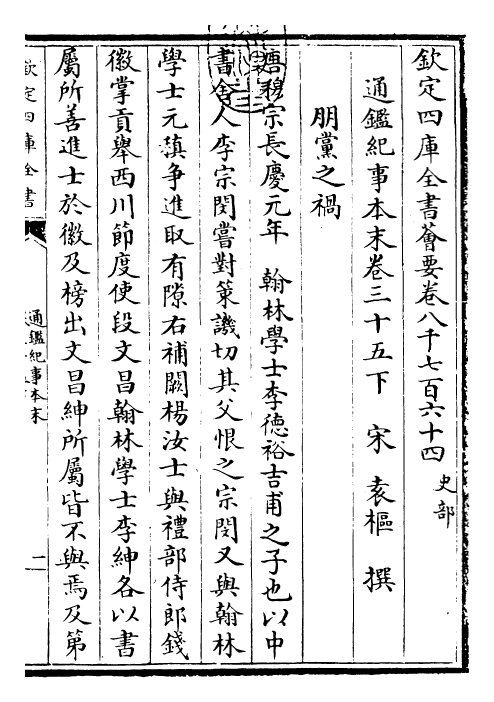 欽定四庫全書薈要卷八千七百六十四 史部
通鑑紀事本末卷三十五下 宋 袁樞 撰
朋黨之禍
唐穆宗長慶元年 翰林學士李德裕吉甫之子也以中
書舍人李宗閔嘗對策譏切其父恨之宗閔又與翰林
學士元稹爭進取有隙右補闕楊汝士與禮部侍郎錢
徽掌貢舉西川節度使段文昌翰林學士李紳各以書
屬所善進士於徽及榜出文昌紳所屬皆不與焉及第
欽定四庫全書
通鑑紀事本末
一